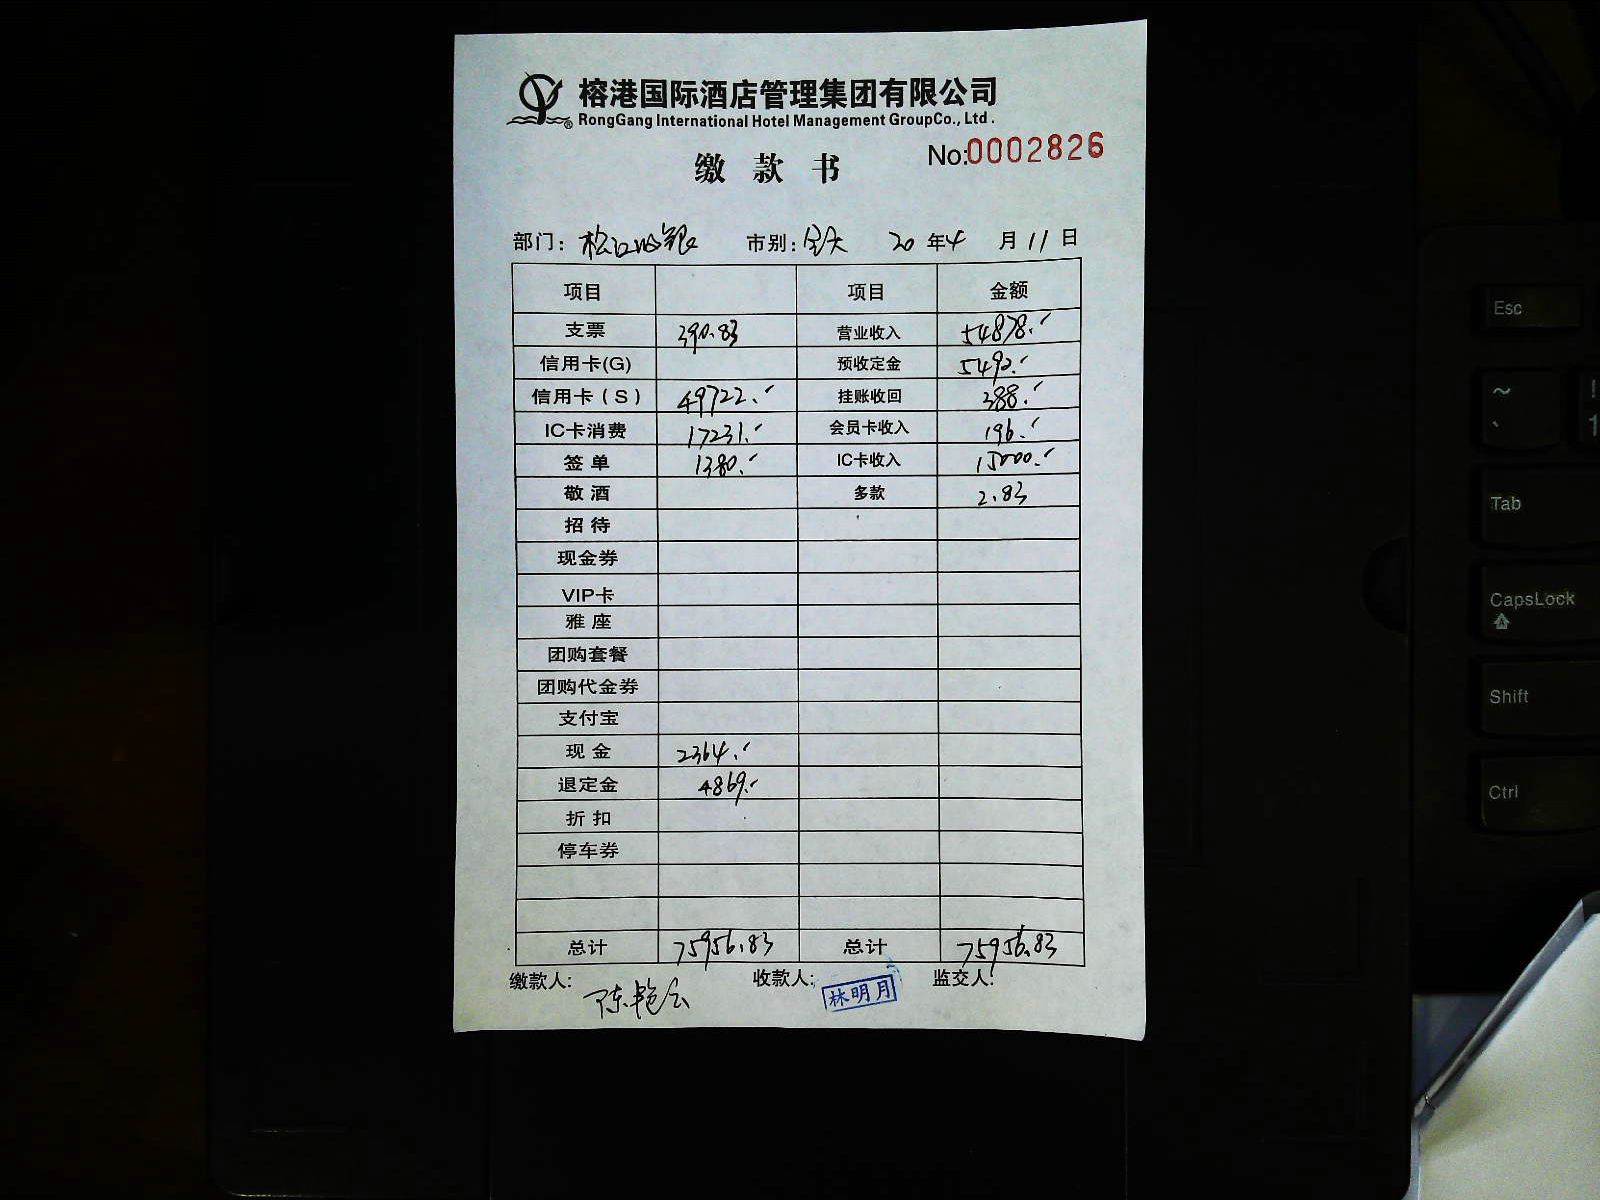 榕港国际酒店管理集团有限公司
RongGang International Hotel Management GroupCo., Ltd .
缴 款 书 No:0002826
部门: 松江收银 市别: 全天 20 年 4 月 11 日
项目 项目 金额
支票 390.83 营业收入 54878.-
信用卡(G) 预收定金 5492.-
信用卡(S) 49722.- 挂账收回 388.-
IC卡消费 17231.- 会员卡收入 196.-
签单 1380.- IC卡收入 15000.-
敬酒 多款 2.83
招待
现金券
VIP卡
雅座
团购套餐
团购代金券
支付宝
现金 2364.-
退定金 4869.-
折扣
停车券
总计 75956.83 总计 75956.83
缴款人: 陈艳 收款人: 林明月 监交人:
Esc
~
Tab
CapsLock
Shift
Ctrl